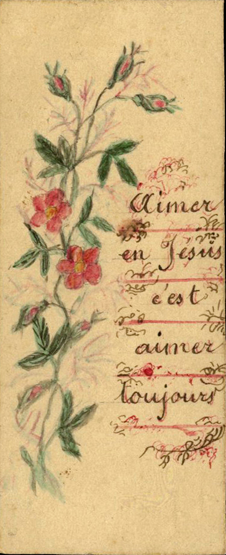 Aimer
en Jésus
c'est
aimer
toujours